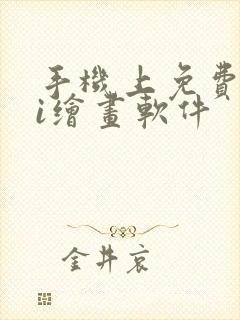 手機上免費
i繪畫軟件
金井哀